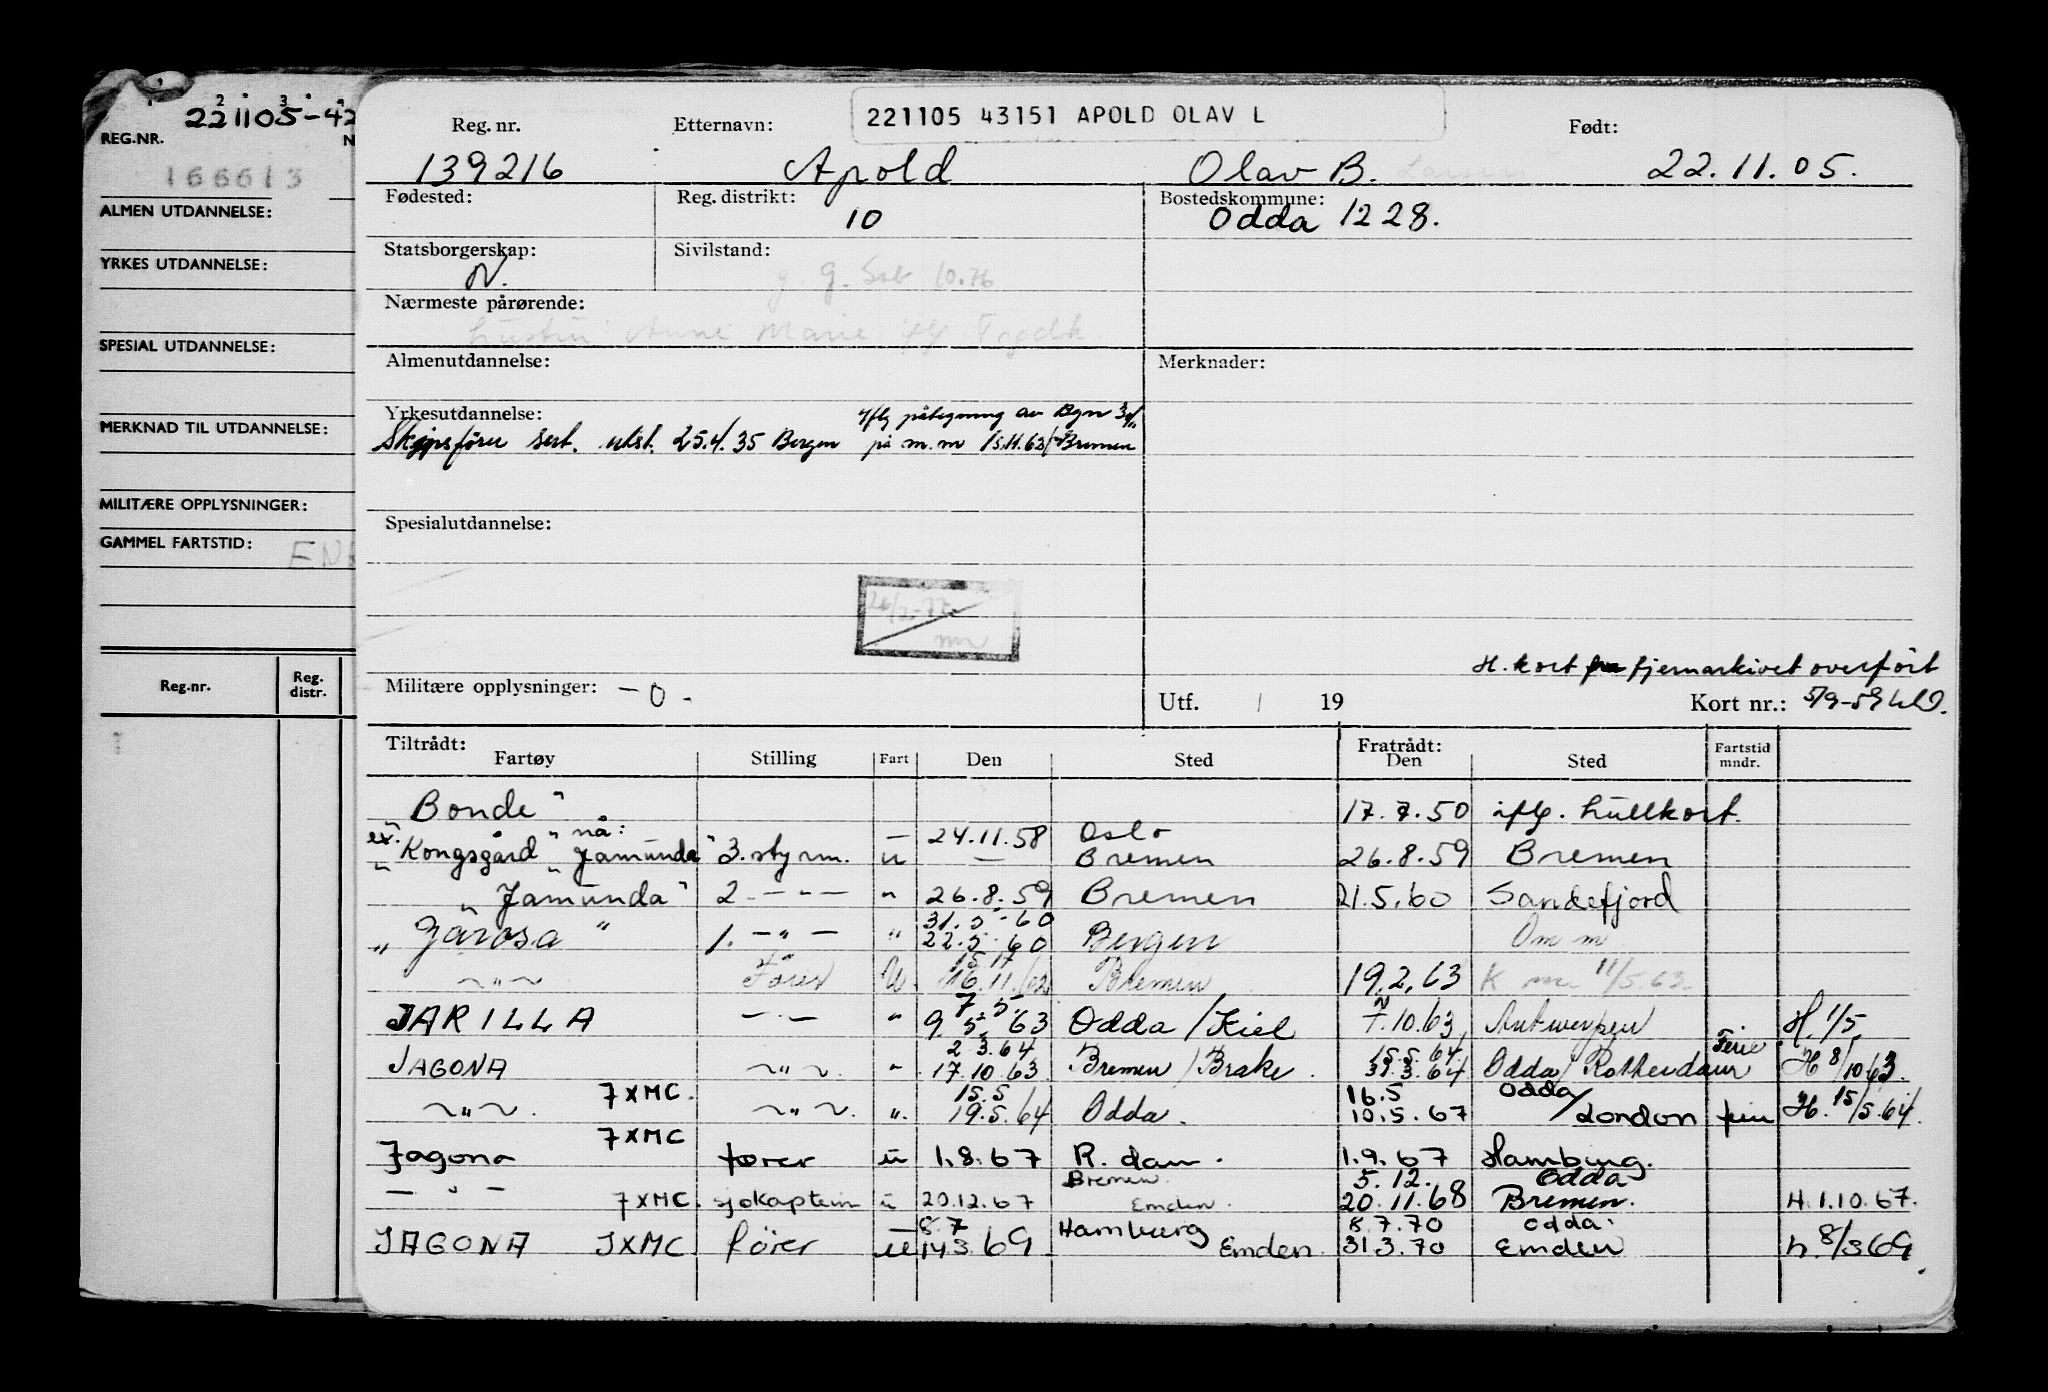 221105-42
REG.NR.
N
166613
ALMEN UTDANNELSE:
YRKES UTDANNELSE:
SPESIAL UTDANNELSE:
MERKNAD TIL UTDANNELSE:
MILITÆRE OPPLYSNINGER:
GAMMEL FARTSTID:
Reg.nr. Reg. distr.
221105 43151 APOLD OLAV L
Reg. nr. Etternavn: Født:
139216 Apold Olav B. 22.11.05.
Fødested: Reg. distrikt: 10 Bostedskommune: Odda 1228.
Statsborgerskap: N. Sivilstand:
g. 10.76
Nærmeste pårørende:
Hustru Anne Marie
Almenutdannelse: Merknader:
Yrkesutdannelse: iflg påtegning av Bgn
Skipsfører sert. utst. 25.4.35 Bergen på m.m Bremen
Spesialutdannelse:
H. kort fjernarkivet overført
Militære opplysninger: -0- Utf. 19 Kort nr.: 5/9-59
Tiltrådt: Fratrådt: Fartstid mndr.
Fartøy Stilling Fart Den Sted Den Sted
Bonde" 17.7.50 iflg. hullkort.
ex. "Kongsgård" nå: "Jamunda" 3. styrm. — u 24.11.58 — Oslo Bremen 26.8.59 Bremen
"Jamunda" 2 — " — " 26.8.59 Bremen 21.5.60 Sandefjord
" Järosa " 1. — " — " 31.5-60 22.5 60 Bergen Om m
~ " ~ Fører U 15 17 16.11/62 Bremen 19.2.63 K 11/5.63.
JARILLA — " — " 7 5 9.5 63 Odda / Kiel 7.10.63 Antwerpen H. 1/5
JAGONA ~ " ~ " 2.3.64 17.10.63 Bremen / Brake 15.5.64 31.3.64 Odda / Rotterdam Ferie H 8/10 63.
~ " ~ 7XMC. ~ " ~ ". 15.5 19.5.64 Odda. 16.5 10.5.67 Odda / London H. 15/5.64
Jagona 7XMC fører u 1.8.67 R.dam. 1.9.67 Hamburg.
— " — 7XMC. sjøkaptein u 20.12.67 Bremen. Emden. 5.12. 20.11.68 Odda Bremen. H.1.10.67.
JAGONA JXMC fører u 8.7 14 3 69 Hamburg Emden. 8.7.70 31.3.70 Odda. Emden h. 8/3 69.